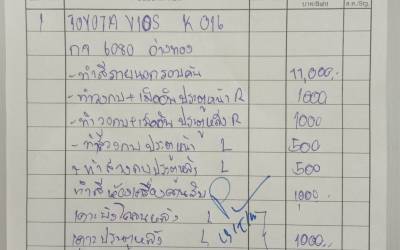 บาท/Baht ส.ต./Stg.
1 TOYOTA VIOS K 016
กจ 6080 อ่างทอง
- ทำสีภายนอกรอบคัน 11,000.-
- ทำวงกบ+เม็ดยันประตูหน้า R 1000
- ทำวงกบ+เม็ดยันประตูหลัง R 1000
- ทำสีวงกบประตูหน้า L 500
- ทำสีวงกบประตูหลัง L 500
ทำสีห้องเครื่อง 1000.-
หลัง L
เคาะประตูหลัง L 1000.-